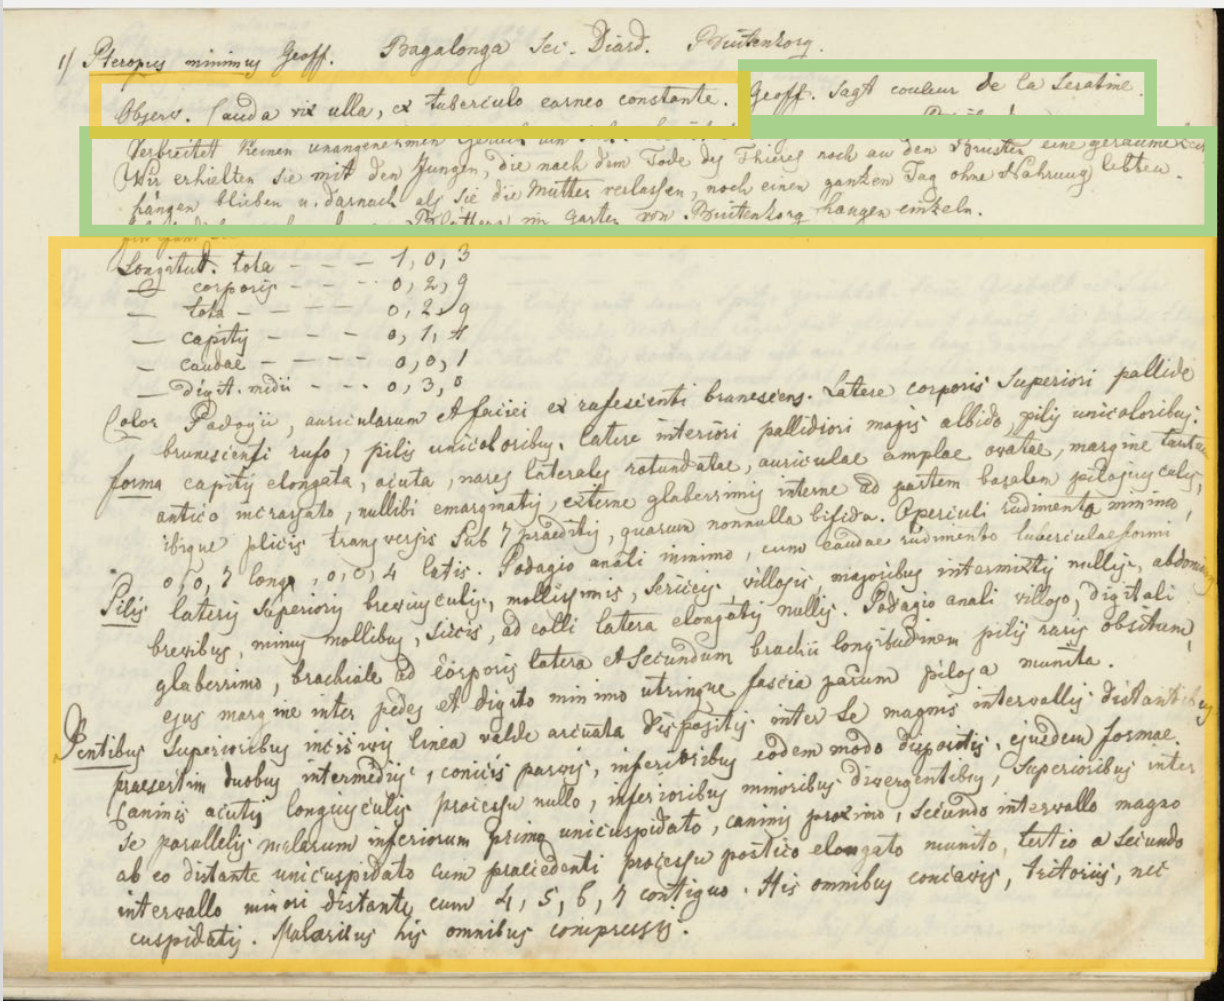 1) Pteropus minimus Geoff. Bagalonga Sci. Diard. Buitenzorg.
Observ. Cauda vix ulla, ex tuberculo carneo constante. Geoff. sagt couleur de la
Verbreitet keinen unangenehmen Geruch
Wir erhielten sie mit den Jungen, die nach dem Tode des Thieres noch an den Brüsten eine geraume
hängen blieben u. darnach als sie die Mutter verlassen, noch einen ganzen Tag ohne Nahrung lebten.
Blättern im Garten von Buitenzorg hangen einzeln.
Longitud. tota - - - 1, 0, 3
— corporis - - - 0, 2, 9
— tota - - - 0, 2, 9
— capitis - - - 0, 1, 1
— caudae - - - 0, 0, 1
— digit. medii - - - 0, 3, 0
Color Padagii, auricularum et faciei ex rufescienti brunescens. Latere corporis superiori pallide
brunescenti rufo, pilis unicoloribus. Latere interiori pallidiori magis albido, pilis unicoloribus.
forma capitis elongata, acuta, nares laterales rotundatae, auriculae amplae ovatae, margine
antico incrassato, nullibi emarginatis, externe glaberrimis interne ad partem basalem
ibique plicis transversis sub 7 praeditis, quarum nonnulla bifida. Operculi rudimento minimo,
0, 0, 7 longa, 0, 0, 4 latis. Padagio anali minimo, cum caudae rudimento tuberculaeformi
Pilis lateris superioris breviusculis, mollissimis, sericeis, villosis, majoribus intermixtis nullis,
brevibus, minus mollibus, siccis, ad colli latera elongatis nullis. Padagio anali villoso, digitali
glaberrimo, brachiale ad corporis latera et secundum brachii longitudinem pilis raris obsitum,
ejus margine inter pedes et digito minimo utringue fascia parum pilosa munita.
Dentibus superioribus incisivis linea valde arcuata dispositis inter se magnis intervallis distantibus
praesertim duobus intermediis, conicis parvis, inferioribus eodem modo dispositis, ejusdem formae.
Caninis acutis longiusculis processu nullo, inferioribus minoribus divergentibus, superioribus inter
se parallelis molarum inferiorum primo unicuspidato, caninis proximo, secundo intervallo magno
ab eo distante unicuspidato cum praecedenti processu postico elongato munito, tertio a secundo
intervallo minori distante, cum 4, 5, 6, 7 contiguo. His omnibus concavis, tritoriis, nec
cuspidatis. Malaribus his omnibus compressis.